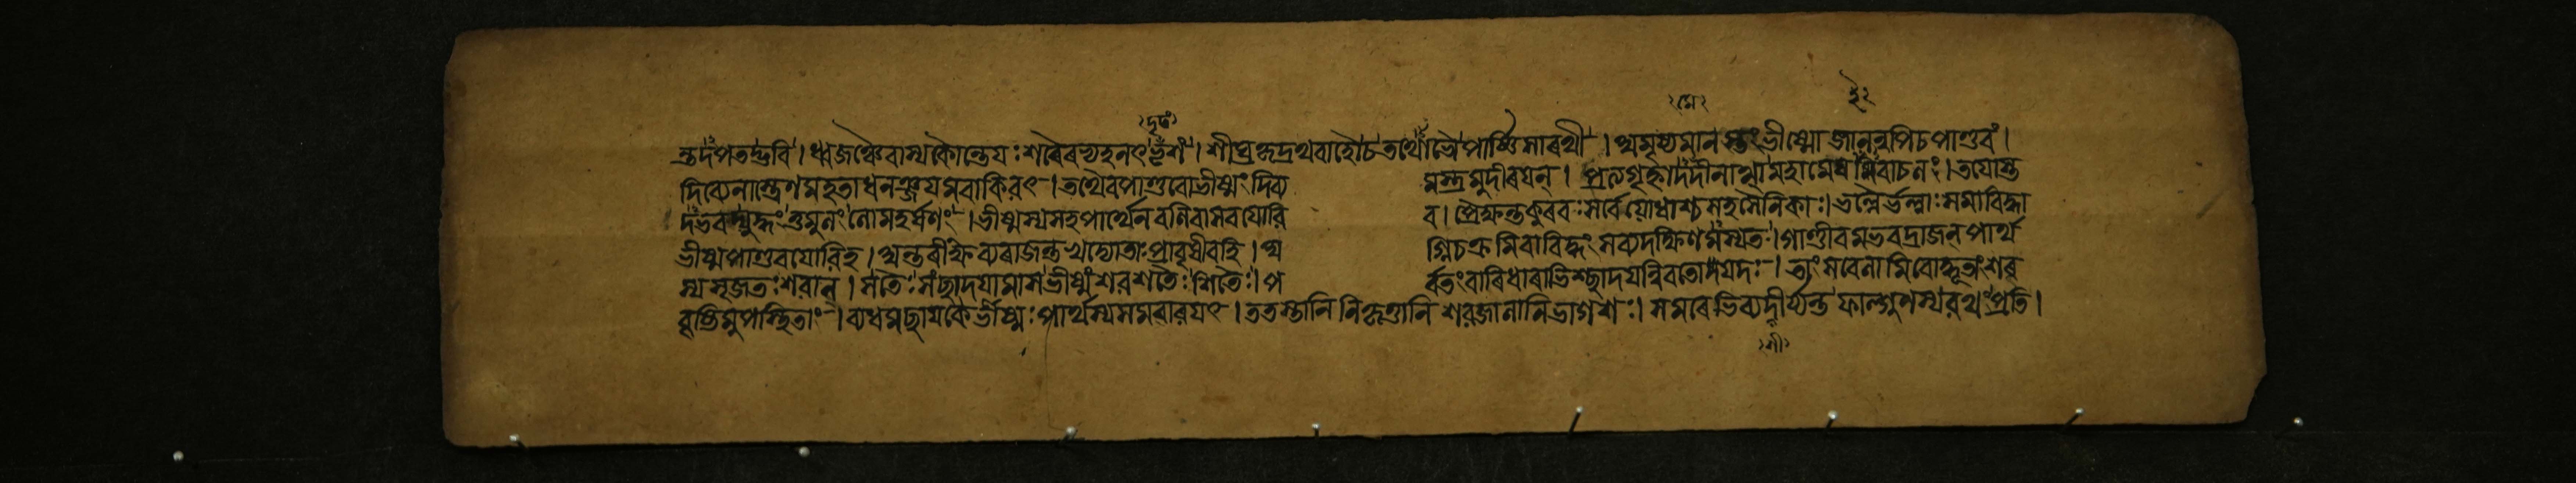 ন্তদপতদ্ভুবি। ধ্বজঞ্চৈবাস্যকৌন্তেযঃশৰৈৰভ্যহনৎদৃঢং। শীঘ্রকৃদ্রথবাহৌচতথোভৌপার্ষ্ণিসাৰথী। অমৃষ্যমানস্তংভীষ্মোজানন্নপিচপাণ্ডবং।
দিব্যেনাস্ত্রেণমহতাধনঞ্জযমবাকিৰৎ। তথৈবপাণ্ডবোভীষ্মংদিব্য মস্ত্রমুদীৰযন্। প্রত্যগৃহ্ণাদদীনাত্মামহামেঘমিবাচলঃ। তযোস্ত
দভবদ্যুদ্ধংতুমুলংলোমহর্ষণং। ভীষ্মস্যসহপার্থেনবলিবাসবযোৰি ব। প্রৈক্ষন্তকুৰবঃসর্বেযোধাশ্চসহসৈনিকাঃ। ভল্লৈর্ভল্লাঃসমাবিদ্ধা
ভীষ্মপাণ্ডবযোৰিহ। অন্তৰীক্ষেব্যৰাজন্তখদ্যোতাঃপ্রাবৃষীবহি। অ গ্নিচক্রমিবাবিদ্ধংসব্যদক্ষিণমস্যতঃ। গাণ্ডীবমভবদ্রাজন্পার্থ
স্যসৃজতঃশৰান্। সতৈঃসংছাদযামাসভীষ্মংশৰশতৈঃশিতৈঃ। প র্বতংবাৰিধাৰাভিশ্ছাদযন্নিবতোযদঃ। তাংসবেলামিবোদ্ধূতাংশৰ
বৃষ্টিমুপাস্থিতাং। ব্যধমছাযকৈর্ভীষ্মঃপার্থস্যসমবাৰযৎ। ততস্তানিনিকৃত্তানিশৰজালানিভাগশঃ। সমৰেভিব্যদীর্য্যন্তফাল্গুণস্যৰথংপ্রতি।